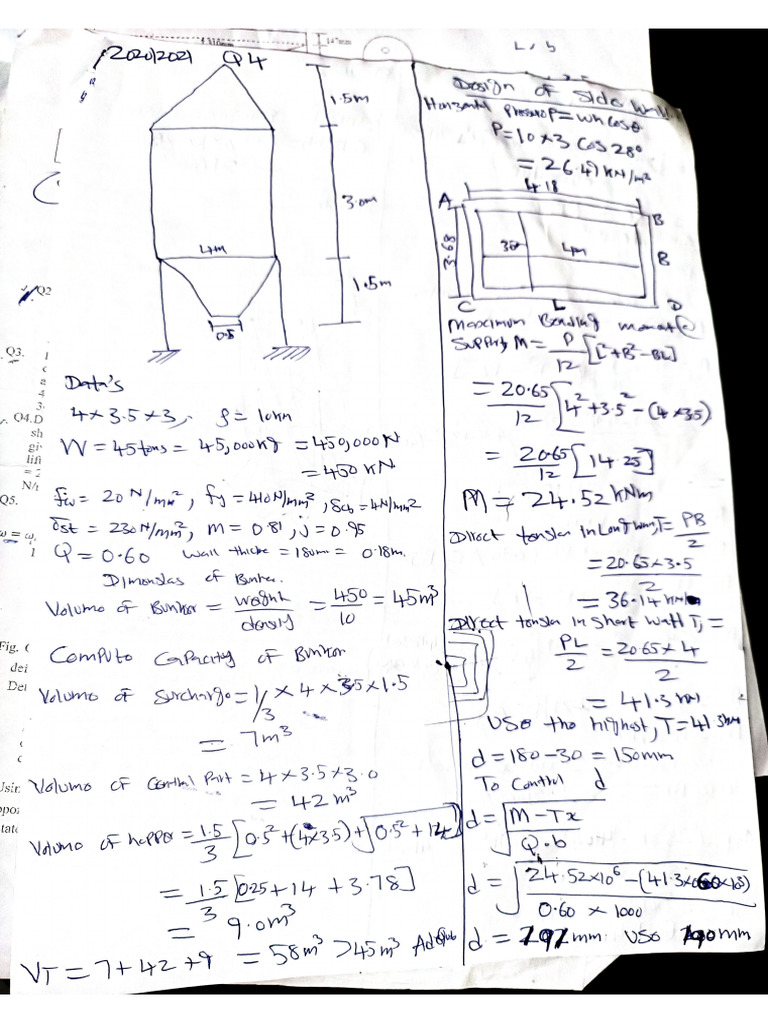 2020/2021 Q4
1.5m
3.0m
4m
1.5m
0.5
Q2
Q3.
Q4.D
sh
gi
lifi
N/r
Q5.
Fig. (
dei
De
Data's
4 × 3.5 × 3, ρ = 10kN
W = 45tons = 45,000kg = 450,000N
= 450 kN
fcu = 20 N/mm², fy = 410N/mm², δcb = 4N/mm²
σst = 230N/mm², m = 0.81, j = 0.95
Q = 0.60 Wall thickne = 180mm = 0.18m.
Dimensias of Bunker.
Volume of Bunker = weight/density = 450/10 = 45m³
Compute Capacity of Bunker
Volume of Surcharge = 1/3 × 4 × 3.5 × 1.5
= 7m³
Volume of Central Part = 4 × 3.5 × 3.0
= 42m³
Volume of hopper = 1.5/3 [0.5² + (4×3.5) + √0.5² + 14]
= 1.5/3 [0.25 + 14 + 3.78]
= 9.0m³
VT = 7 + 42 + 9 = 58m³ > 45m³
L, b
Design of Side Wall
Horizontal Pressure P = wh cosθ
P = 10 × 3 cos 28°
= 26.49 kN/m²
4.18
A B
3.68 4m B
C L D
Maximum Bending moment @
Support M = P/12 [L² + B² - BL]
= 20.65/12 [4² + 3.5² - (4 × 3.5)
= 20.65/12 [14.25]
M = 24.52 kNm
Direct tension in Long wall, T = PB/2
= 20.65 × 3.5/2
= 36.14 kN
Direct tension in Short wall T, =
PL/2 = 20.65 × 4/2
= 41.3 kN
Use the highest, T = 41.3kN
d = 180 - 30 = 150mm
To Control d
d = √M - Tx/Q.b
d = √24.52×10⁶ - (41.3×60×10³)/0.60 × 1000